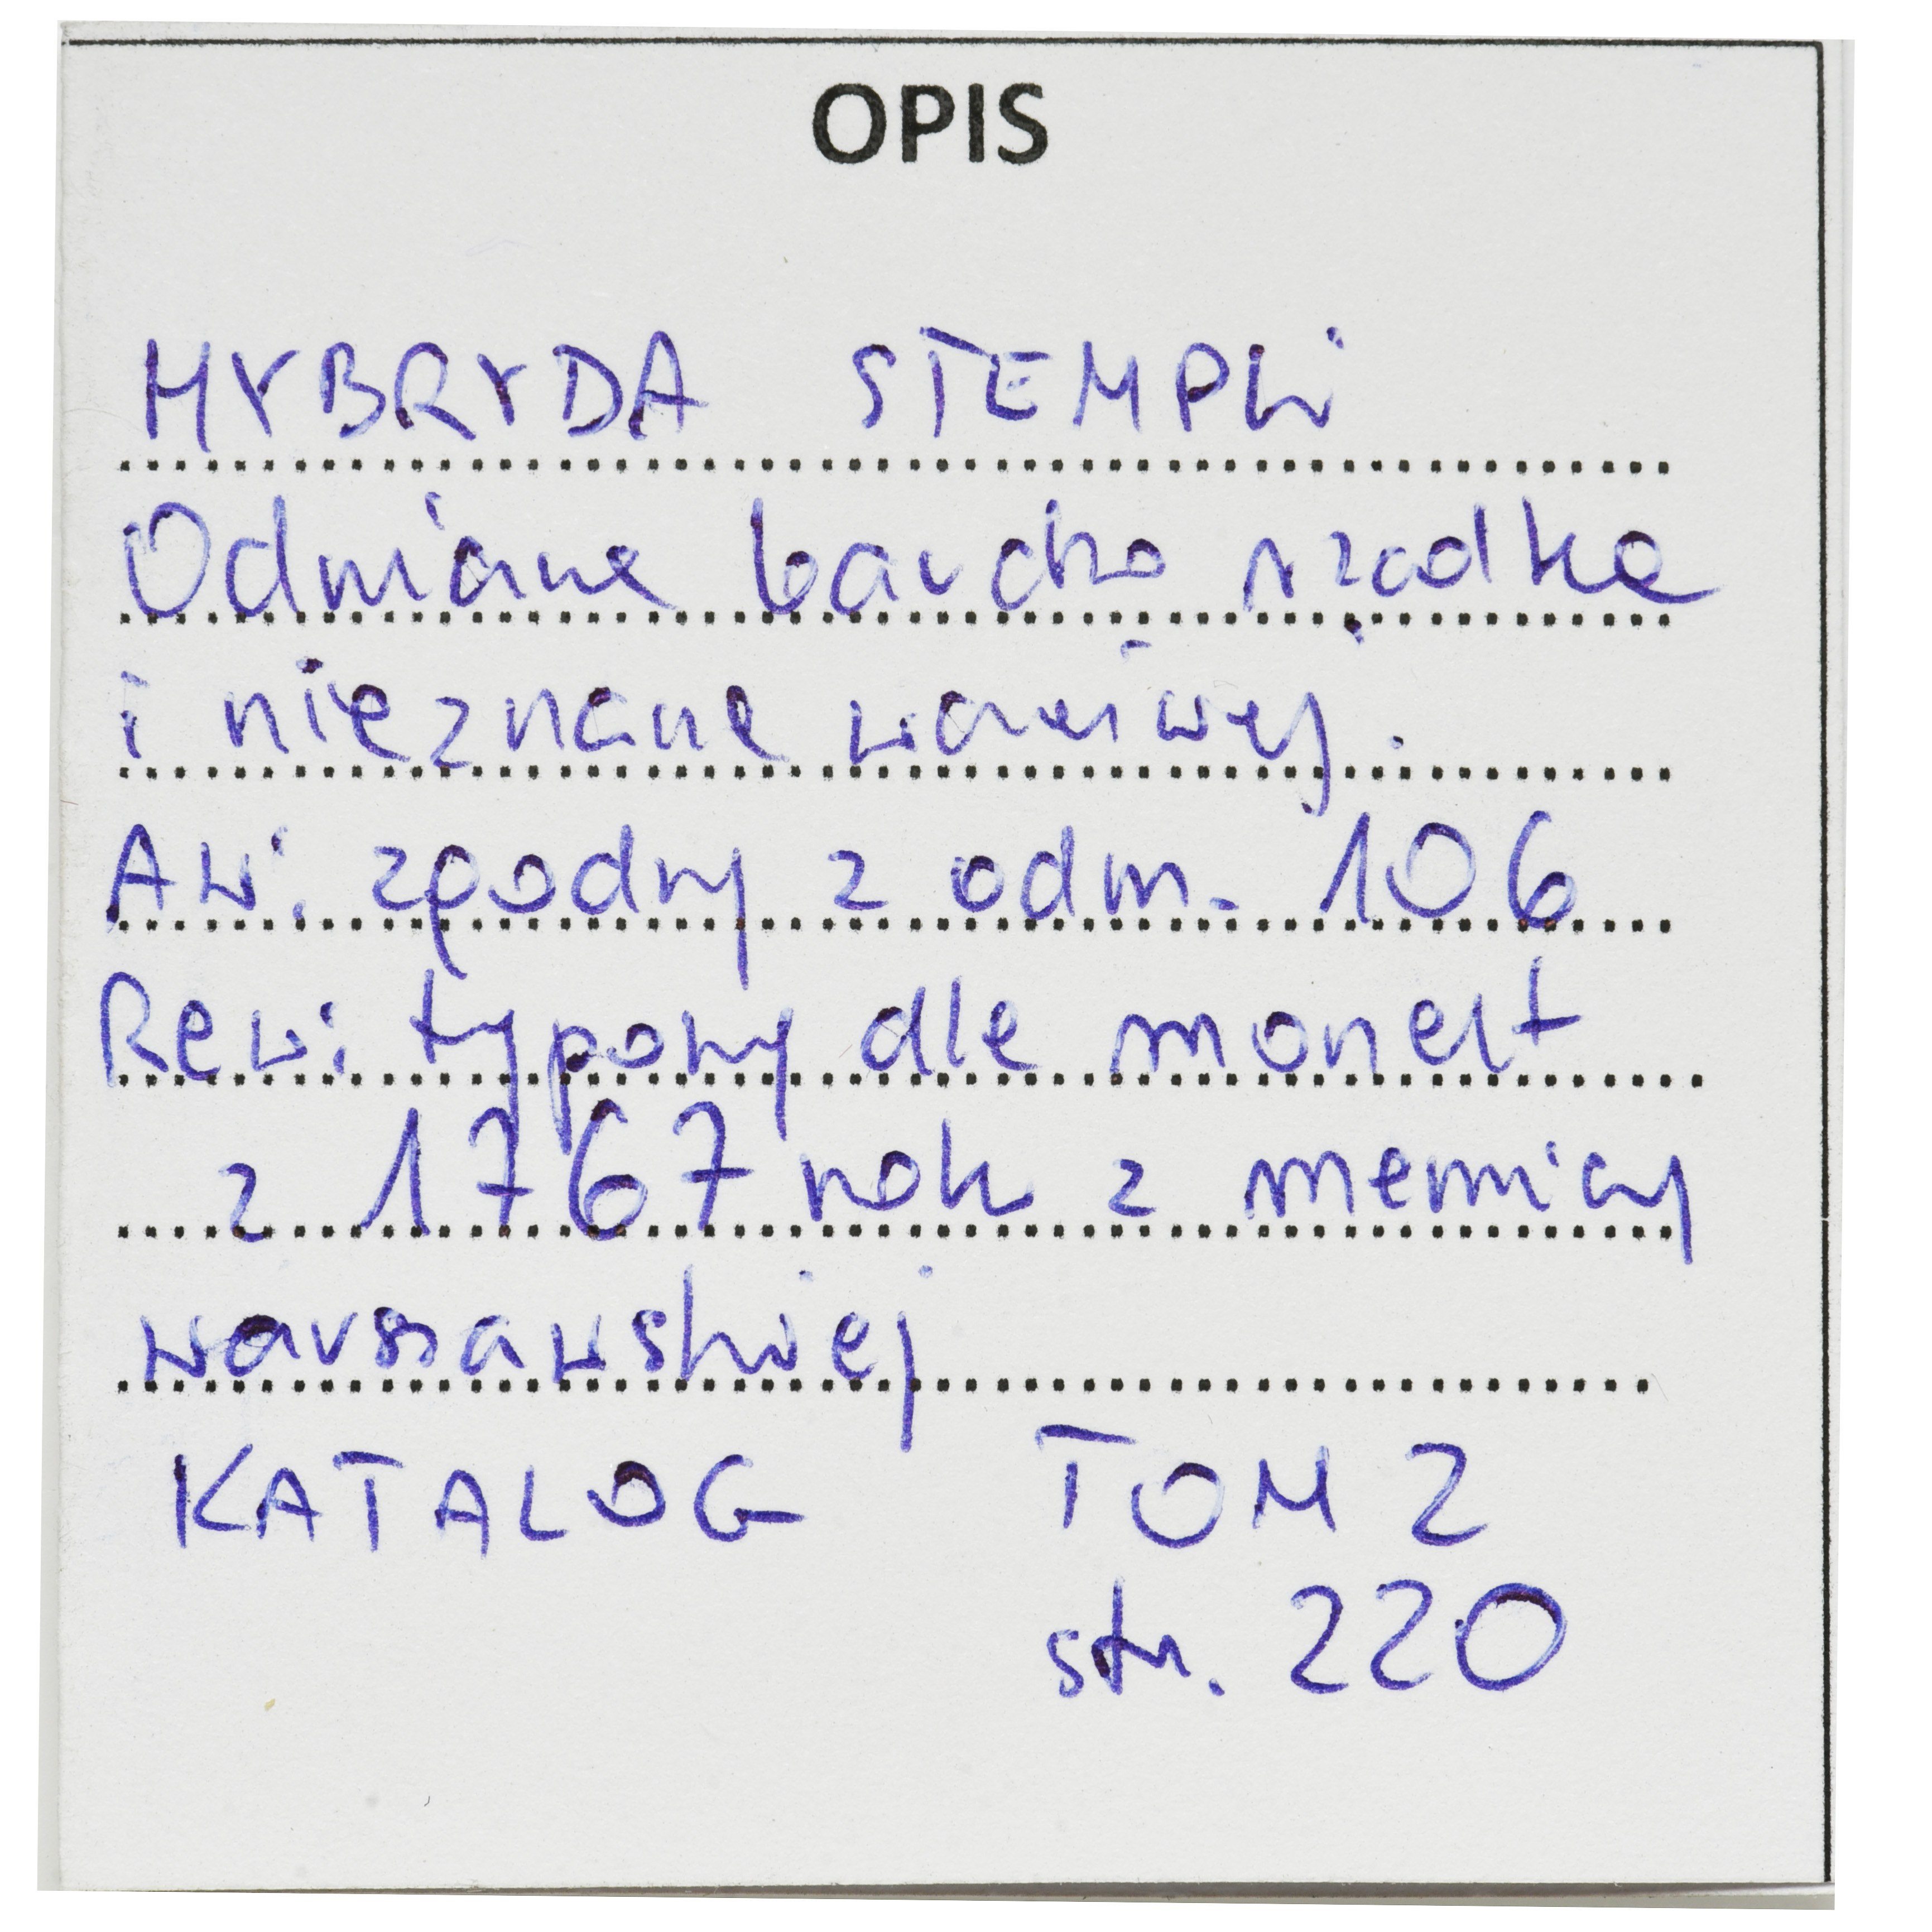 OPIS
HYBRYDA STEMPLI
Odmiana bardzo rzadka
i nieznana
Aw: zgodny z odm. 106
Rew: typowy dla monet
z 1767 rok z mennicy
warszawskiej
KATALOG TOM 2
str. 220